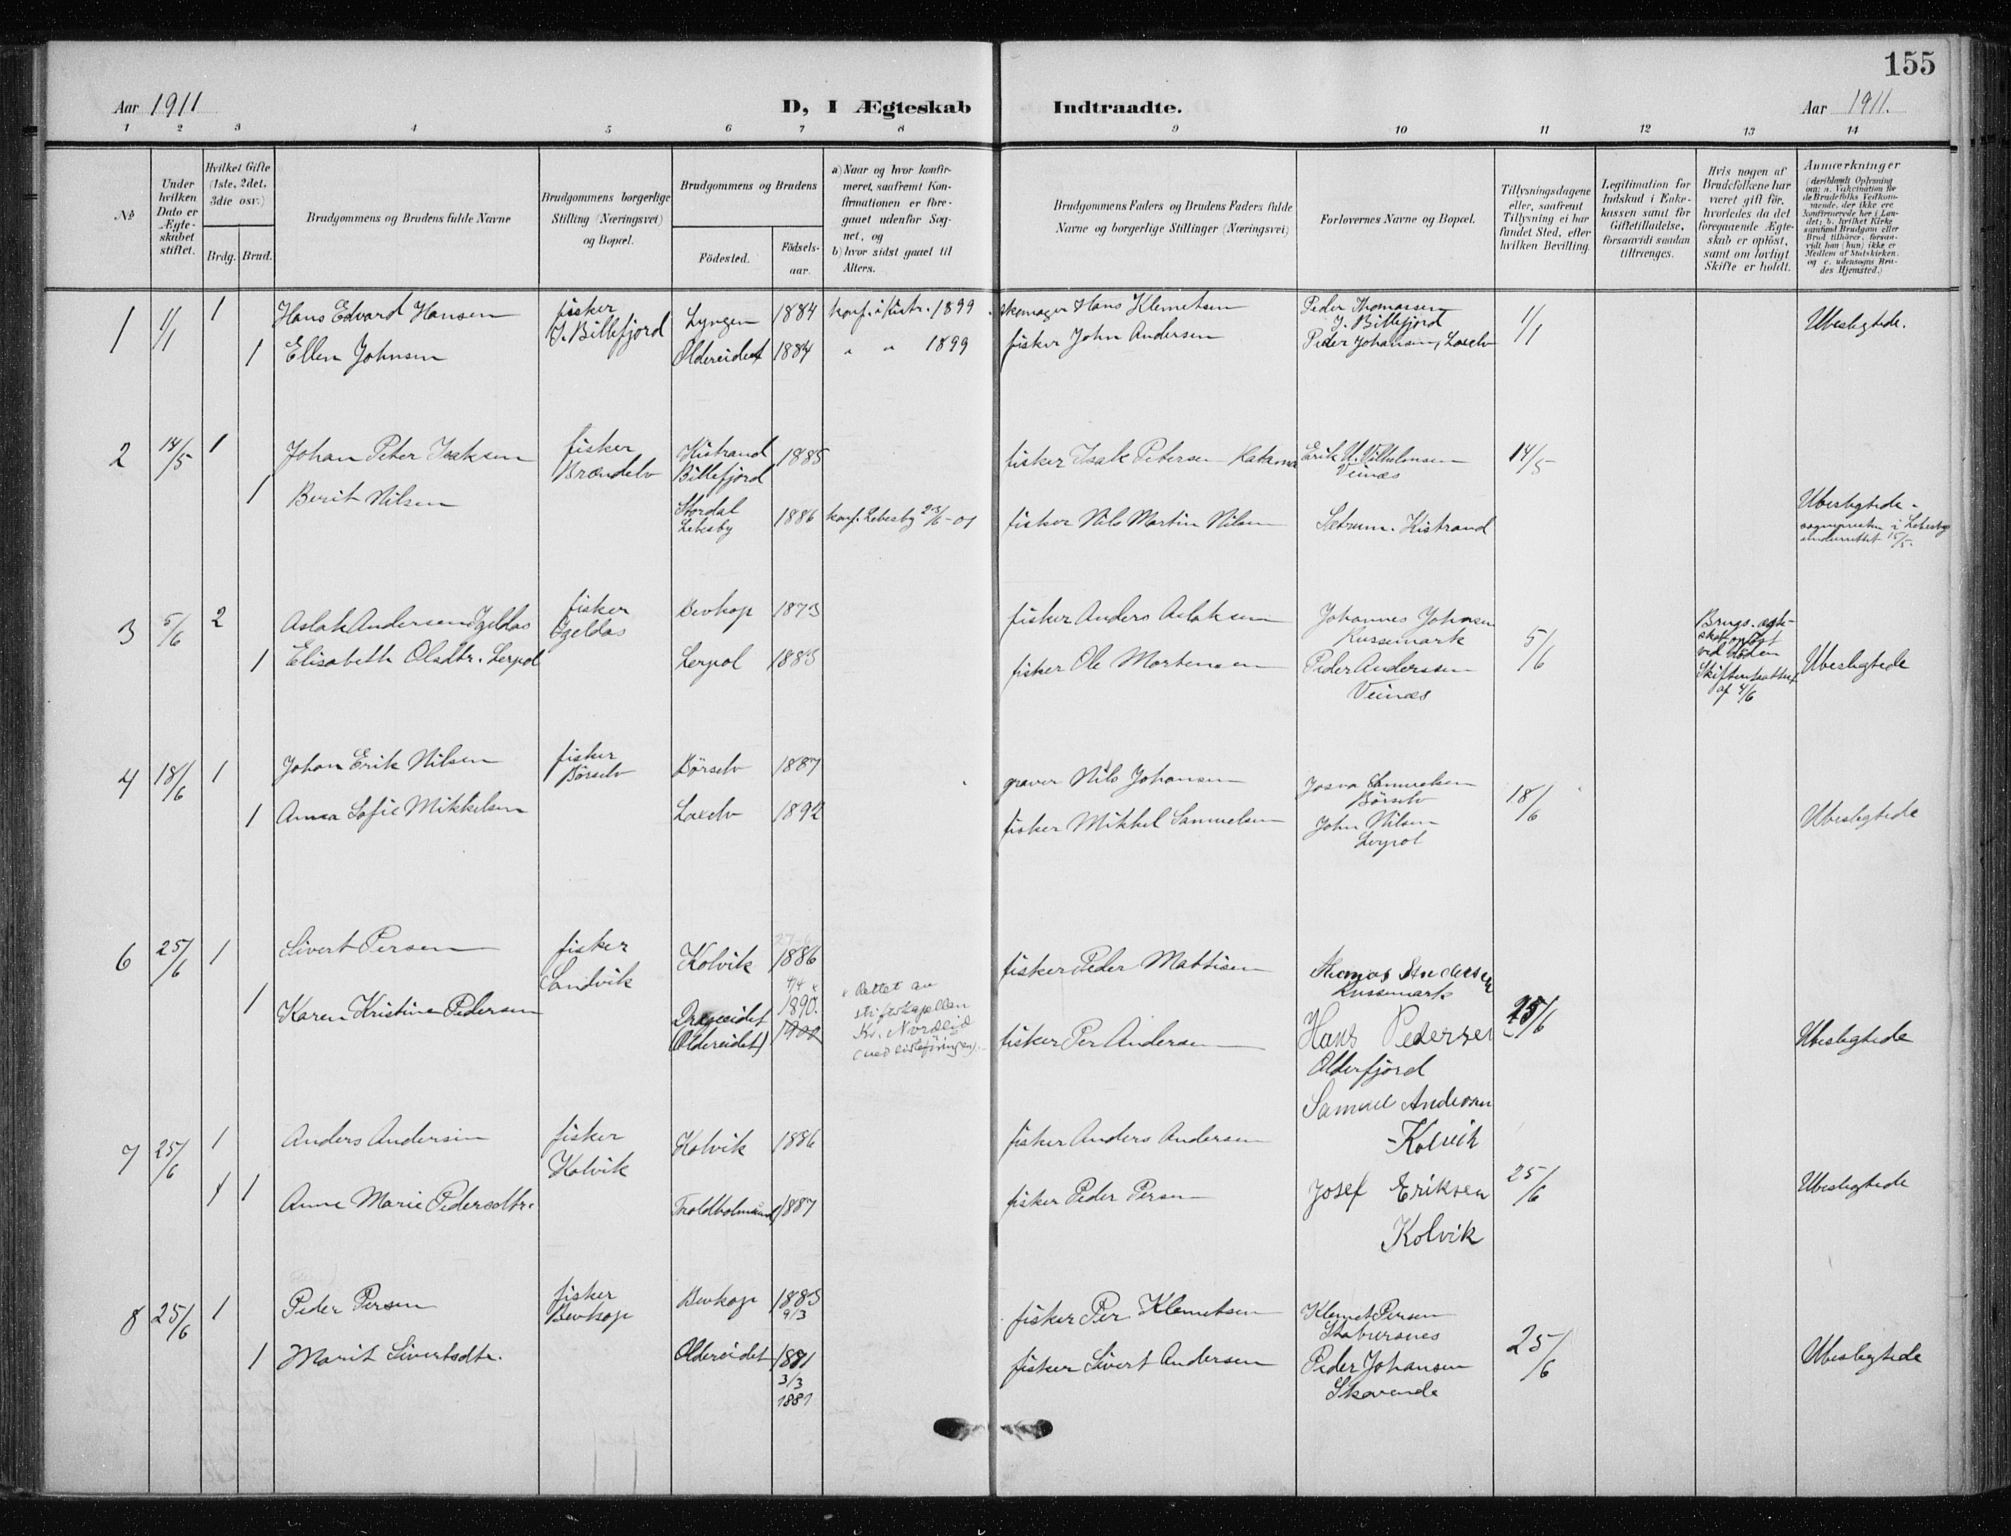 155
Aar 1911
D, I Ægteskab Indtraadte.
Aar 1911.
1 2 3 4 5 6 7 8 9 10 11 12 13 14
No.
Under hvilken Dato er Ægteskabet stiftet.
Hvilket Gifte (1ste, 2det, 3die osv.)
Brdg. Brud.
Brudgommens og Brudens fulde Navne
Brudgommens borgerlige Stilling (Næringsvei) og Bopæl.
Brudgommens og Brudens
Födested.
Födselsaar.
a) Naar og hvor konfirmeret, saafremt Konfirmationen er foregaaet udenfor Sognet, og
b) hvor sidst gaaet til Alters.
Brudgommens Faders og Brudens Faders fulde Navne og borgerlige Stillinger (Næringsvei)
Forlovernes Navne og Bopæl.
Tillysningsdagene eller, saafremt Tillysning ei har fundet Sted, efter hvilken Bevilling.
Legitimation for Indskud i Enkekassen samt for Giftetilladelse, forsaavidt saadan tiltrænges.
Hvis nogen af Brudefolkene har været gift för, hvorledes da det foregaaende Ægteskab er oplöst, samt om lovligt Skifte er holdt.
Anmærkninger
(deriblandt Oplysning om: a. Vakcination for de Brudefolks Vedkommende, der ikke ere konfirmerede her i Landet; b. hvilket Kirkesamfund Brudgom eller Brud tilhörer, forsaavidt han (hun) ikke er Medlem af Statskirken, og c. udensogns Brudes Hjemsted.)
1 1/1 1 Hans Edvard Hansen fisker Lyngen 1884 konf. i Kistr. 1899 skomager Hans Klemetsen Peder Thomassen 1/1
I. Billefjord I. Billefjord
1 Ellen Johnsen Oldereidet 1884 " " 1899 fisker John Andersen Peder Johansen, Laxelv Ubeslegtede.
2 14/5 1 Johan Peter Isaksen fisker Kistrand 1885 fisker Isak Petersen Erik N. Vilhelmsen 14/5
Brændelv Billefjord Veinæs
1 Berit Nilsen Stordal Lebesby 1886 konf. Lebesby 23/6-01 fisker Nils Martin Nilsen Sætrum. Kistrand Ubeslegtede.
sognepresten i Lebesby
underrettet 15/5.
3 5/6 2 Aslak Andersen Igeldas fisker Bevkop 1873 fisker Anders Aslaksen Johannes Johnsen 5/6
Igeldas Kussemark
1 Elisabeth Olsdtr. Lerpol Lerpol 1883 fisker Ole Mortensen Peder Anderssen Ubeslegtede
Veinæs
Brugs. ægteskab opløst
ved Døden
Skifteattest
af 4/6
4 18/6 1 Johan Erik Nilsen fisker Børselv 1887 graver Nils Johansen Josva Samuelsen 18/6
Børselv Børselv
1 Anna Sofie Mikkelsen Laxelv 1892 fisker Mikkel Samuelsen John Nilsen Ubeslegtede
Lerpol
6 25/6 1 Sivert Persen fisker Kolvik 1886 fisker Peder Mattisen Thomas Andersen
Sandvik Kussemark
1 Karen Kristine Pedersen 4/4 x 1890. x Rettet av
Drageidet stiftskapellan
(Oldereidet) 1900 Kr. Nordeid
(ved listeføringen).
fisker Per Andersen Hans Pedersen 25/6 Ubeslegtede
Olderfjord
7 25/6 1 Anders Andersen fisker Kolvik 1886 fisker Anders Andersen Samuel Andersen
Kolvik -Kolvik
1 1 Anne Marie Pedersdtr. Troldholmsund 1887 fisker Peder Persen Josef Eriksen 25/6 Ubeslegtede
Kolvik
8 25/6 1 Peder Persen fisker Bevkop 1883 fisker Per Klemetsen Klemet Persen
Bevkop 9/3 Stabursnes
1 Marit Sivertsdtr. Oldereidet 1881 fisker Sivert Andersen Peder Johansen 25/6 Ubeslegtede
3/3 Skovende
1881